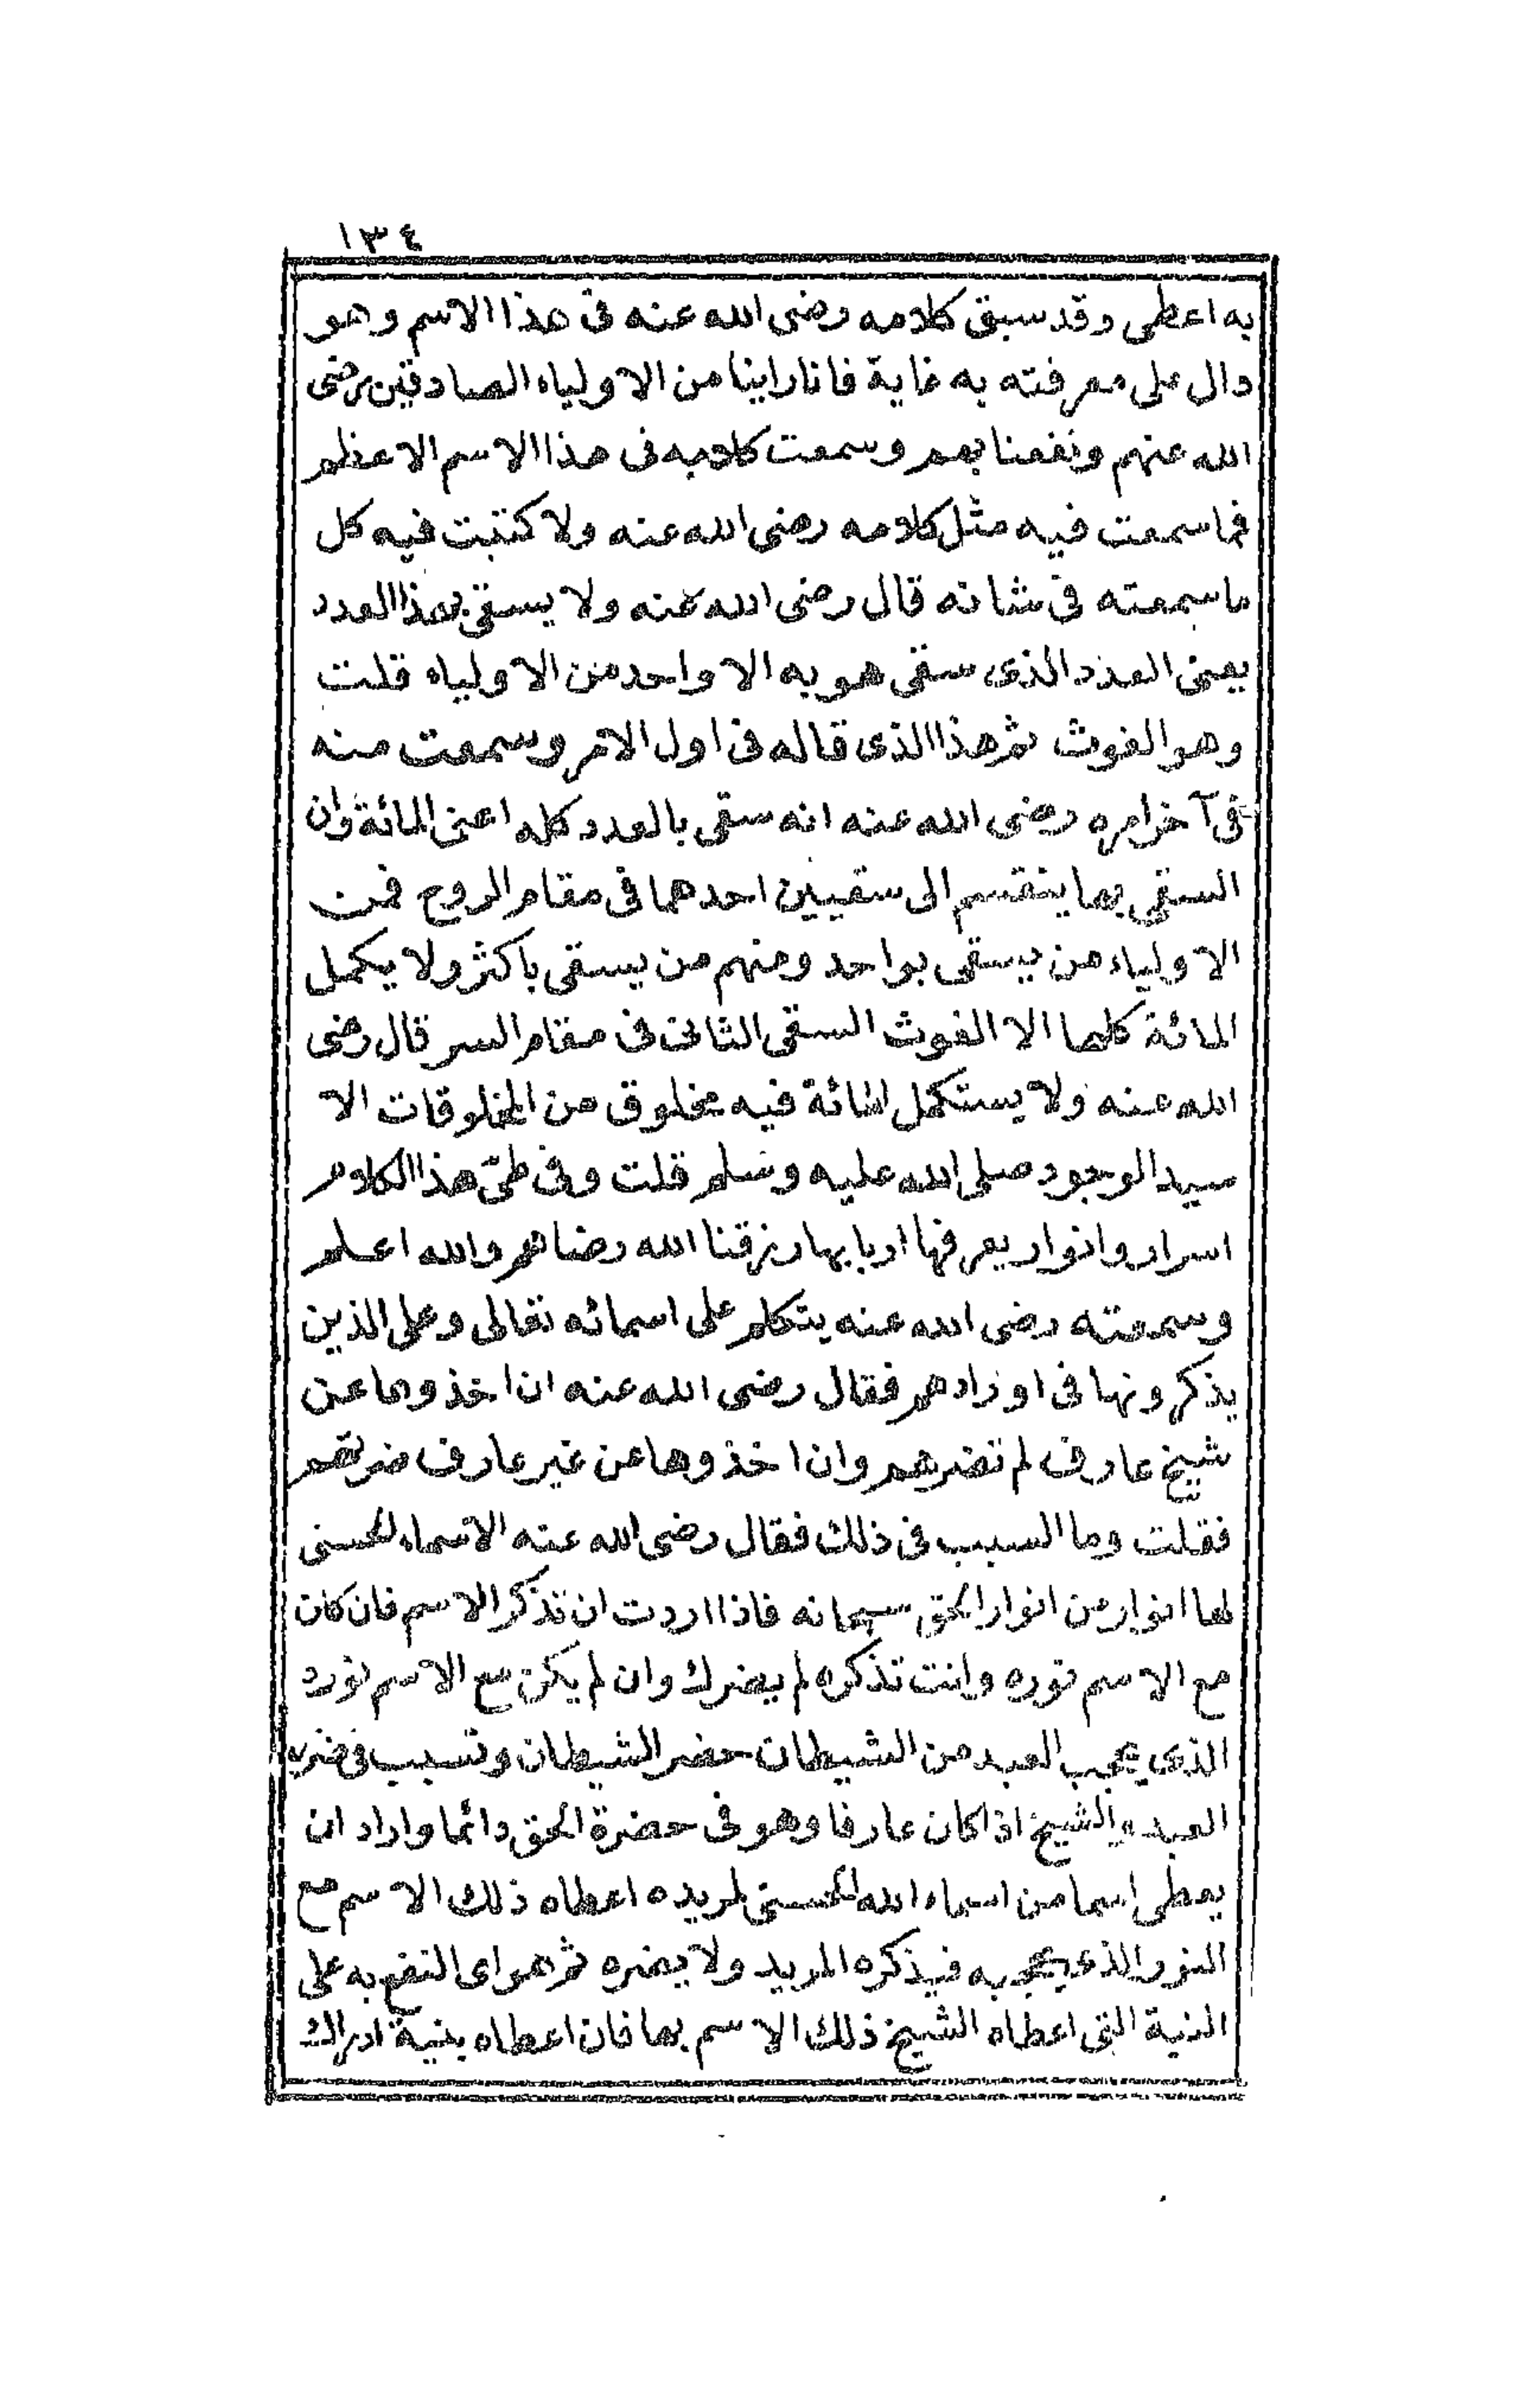 ١٣٤
به اعطى وقد سبق كلامه رضى الله عنه فى هذا الاسم وهو
دال على معرفته به غاية فانا راينا من الاولياء الصادقين رضى
الله عنهم ونفعنا بهم وسمعت كلامه فى هذا الاسم الاعظم
فما سمعت فيه مثل كلامه رضى الله عنه ولا كتبت فيه كل
ما سمعته فى شانه قال رضى الله عنه ولا يسقى بهذا العدد
يعنى العدد الذى سقى هو به الا واحد من الاولياء قلت
وهو الغوث ثم هذا الذى قاله فى اول الامر وسمعت منه
فى آخر امره رضى الله عنه انه سقى بالعدد كله اعنى المائة وان
السقى بها ينقسم الى سقيين احدهما فى مقام الروح فمن
الاولياء من يسقى بواحد ومنهم من يسقى باكثر ولا يكمل
المائة كلها الا الغوث السقى الثانى فى مقام السر قال رضى
الله عنه ولا يستكمل المائة فيه مخلوق من المخلوقات الا
سيد الوجود صلى الله عليه وسلم قلت وفى طىّ هذا الكلام
اسرار وانوار يعرفها اربابها رزقنا الله رضاهم والله اعلم
وسمعته رضى الله عنه يتكلم على اسمائه تعالى وعلى الذين
يذكرونها فى اورادهم فقال رضى الله عنه ان اخذوها عن
شيخ عارف لم تضرهم وان اخذوها عن غير عارف ضرتهم
فقلت وما السبب فى ذلك فقال رضى الله عنه الاسماء الحسنى
لها انوار من انوار الحق سبحانه فاذا اردت ان تذكر الاسم فان كان
مع الاسم نوره وانت تذكره لم يضرك وان لم يكن مع الاسم نوره
الذى يحجب العبد من الشيطان حضر الشيطان وتسبب فى ضرر
العبد والشيخ اذا كان عارفا وهو فى حضرة الحق دائما واراد ان
يعطى اسما من اسماء الله الحسنى لمريده اعطاه ذلك الاسم مع
النور الذى يحجبه فيذكره المريد ولا يضره ثم هو اى النفع به على
النية التى اعطاه الشيخ ذلك الاسم بها فان اعطاه بنية ادراك